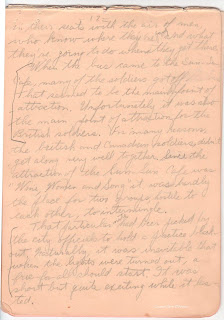 12.
in their seats with the air of men
who know where they're and what
they're going to do when they get there.
When the bus came to the San-
Souci, many of the soldiers got off.
That seemed to be the main point of
attraction. Unfortunately, it was also
the main point of attraction for the
British soldiers. For many reasons,
the British and Canadian soldiers didn't
get along very well together. Since the
attraction of the Sans Souci Cafe was
"Wine, Women and Song" it was hardly
the place for two groups, hostile to
each other, to intermingle.
That particular had been picked by
the city officials to hold a practice black
out. Naturally, it was inevitable that
when the lights were turned out, a
free-for-all should start. It was
short but quite exciting while it las-
ted.